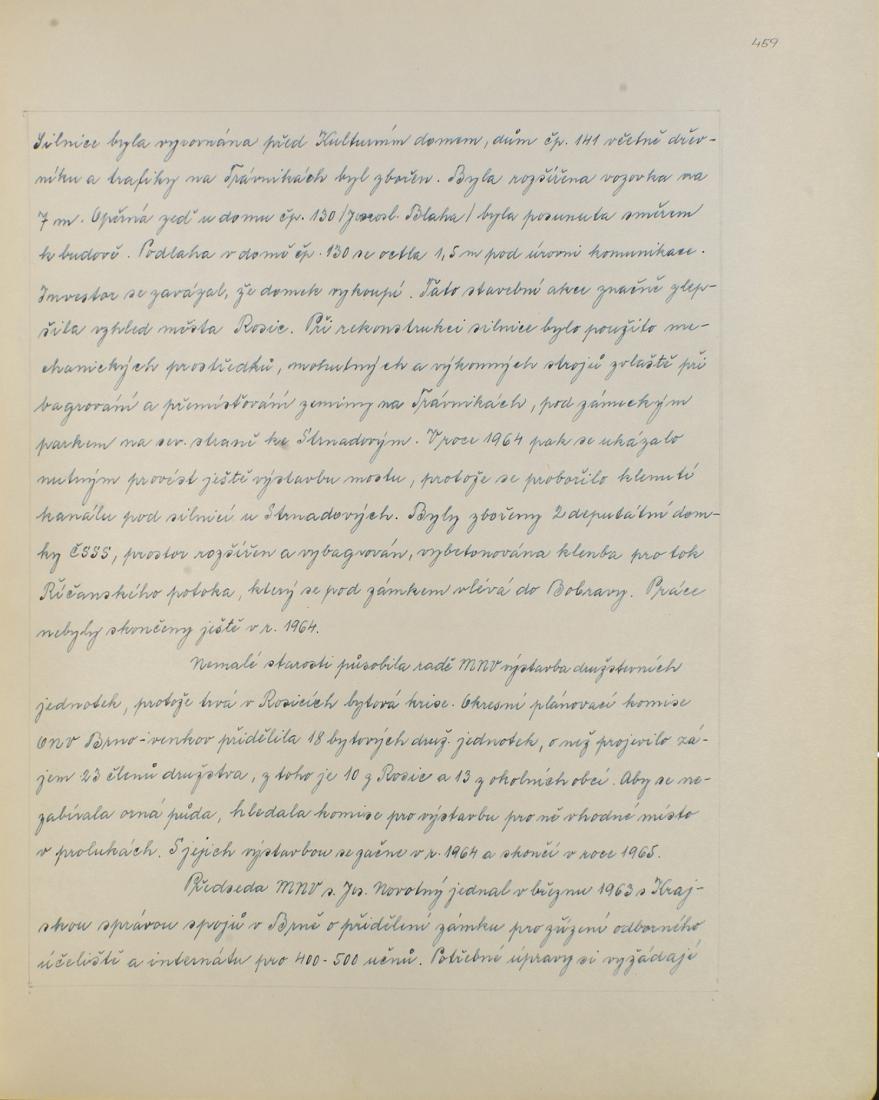 459
Silnice byla vyrovnána před Kulturním domem, dům čp. 141 včetně dřev-
níku a trafiky na Trávnikách byl zbořen. Byla rozšířena vozovka na
7 m. Opěrná zeď u domu čp. 130 /Jarosl. Blaha/ byla posunuta směrem
k budově. Podlaha v domě čp. 130 se octla 1,5 m pod úrovni komunikace.
Investor se zavázal, že domek vykoupí. Tato stavební akce značně zlep-
šila vzhled města Rosic. Při rekonstrukci silnice bylo použito me-
chanických prostředků, mohutných a výkonných strojů zvláště při
bagrování a přemisťování zeminy na Trávnikách, pod zámeckým
parkem na sev. straně ke Strnadovým. V roce 1964 pak se ukázalo
nutným provést ještě výstavbu mostu, protože se probořilo klenutí
kanálu pod silnicí u Strnadových. Byly zbořeny 2 deputátní dom-
ky ČSSS, prostor rozšířen a vybagrován, vybetonována klenba pro tok
Říčanského potoka, který se pod zámkem vlévá do Bobravy. Práce
nebyly skončeny ještě v r. 1964.
Nemalé starosti působila radě MNV výstavba družstevních
jednotek, protože trvá v Rosicích bytová krise. Okresní plánovací komise
ONV Brno-venkov přidělila 18 bytových druž. jednotek, o než projevilo zá-
jem 23 členů družstva, z toho je 10 z Rosic a 13 z okolních obcí. Aby se ne-
zabírala orná půda, hledala komise pro výstavbu pro ně vhodné místo
v prolukách. S jejich výstavbou se začne v r. 1964 a skončí v roce 1965.
Předseda MNV s. Jos. Novotný jednal v březnu 1963 s Kraj-
skou správou spojů v Brně o přidělení zámku pro zřízení odborného
účeliště a internátu pro 400-500 učnů. Potřebné úpravy si vyžádají